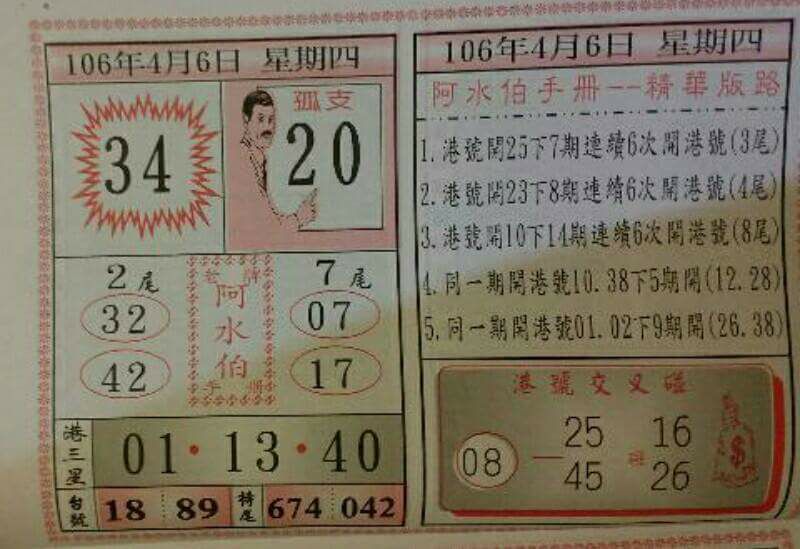 106年4月6日 星期四
34
孤支
20
2尾
7尾
老牌
阿水伯
手冊
32
42
07
17
港三星
01·13·40
台號
18 89
特尾
674 042
106年4月6日 星期四
阿水伯手冊--精華版路
1.港號開25下7期連續6次開港號(3尾)
2.港號開23下8期連續6次開港號(4尾)
3.港號開10下14期連續6次開港號(8尾)
4.同一期開港號10.38下5期開(12.28)
5.同一期開港號01.02下9期開(26.38)
港號交叉碰
08 — 25 45 碰 16 26
$